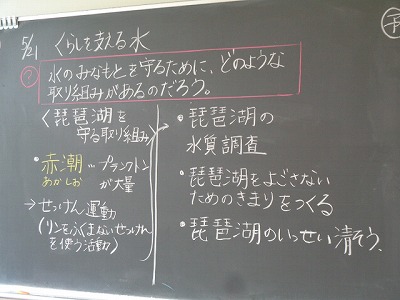 5/21 くらしを支える水
? 水のみなもとを守るために、どのような
取り組みがあるのだろう。
〈琵琶湖を
守る取り組み〉
・赤潮…プランクトン
あかしお が大量
→せっけん運動
(リンをふくまないせっけん
を使う活動)
・琵琶湖の
水質調査
・琵琶湖をよごさない
ためのきまりをつくる
・琵琶湖のいっせい清そう
予